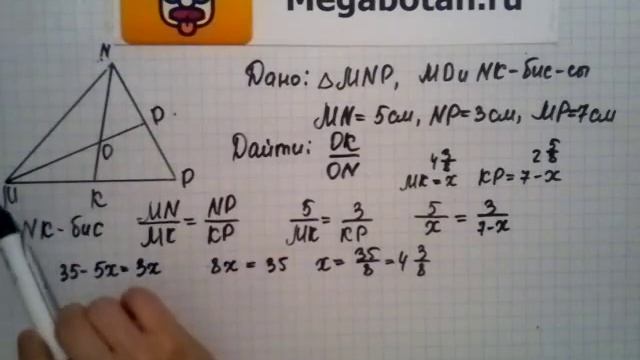 Megabotan.ru
Дано: △MNP, MD и NK-бис-сы
MN = 5см, NP = 3см, MP = 7см
Найти: OK/ON
4 3/8 2 5/8
MK = x KP = 7-x
N
D
O
M K P
NK-бис MN/MK = NP/KP 5/MK = 3/KP 5/x = 3/7-x
35-5x = 3x 8x = 35 x = 35/8 = 4 3/8